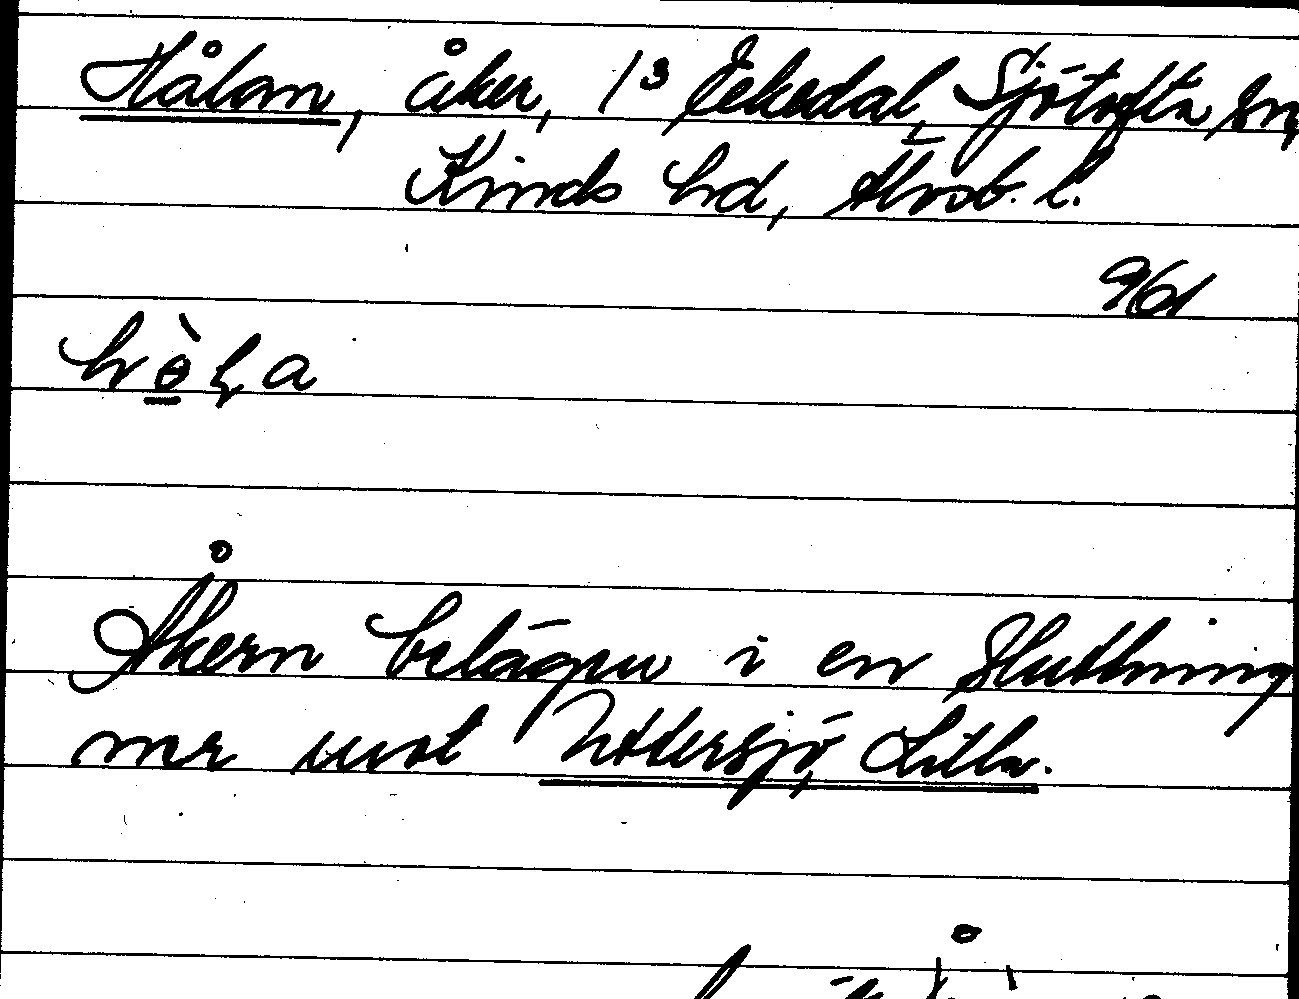 Hålan, åker, 1³ Eekedal, Sjötofta sn,
Kinds hd, Älvsb. l.
961
Åkern belägen i en sluttning
ner mot Uttersjö, Lilla.